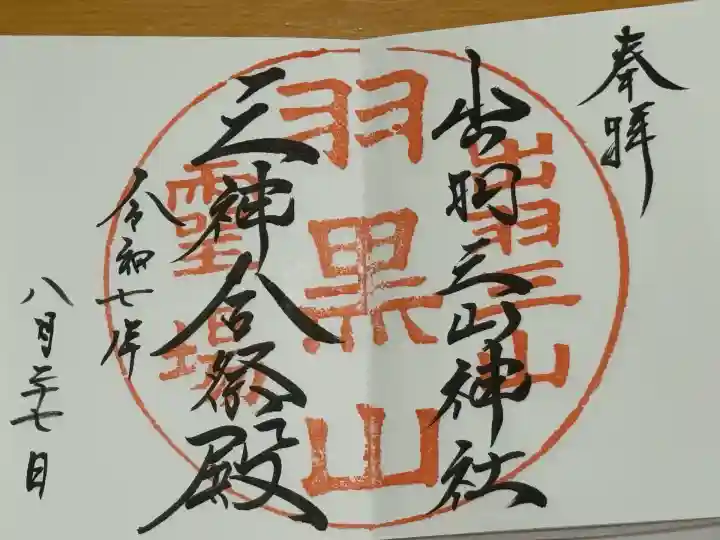 奉拝
出羽三山神社
三神合祭殿
令和七年
八月二十七日
出羽三山
羽黒山
霊場